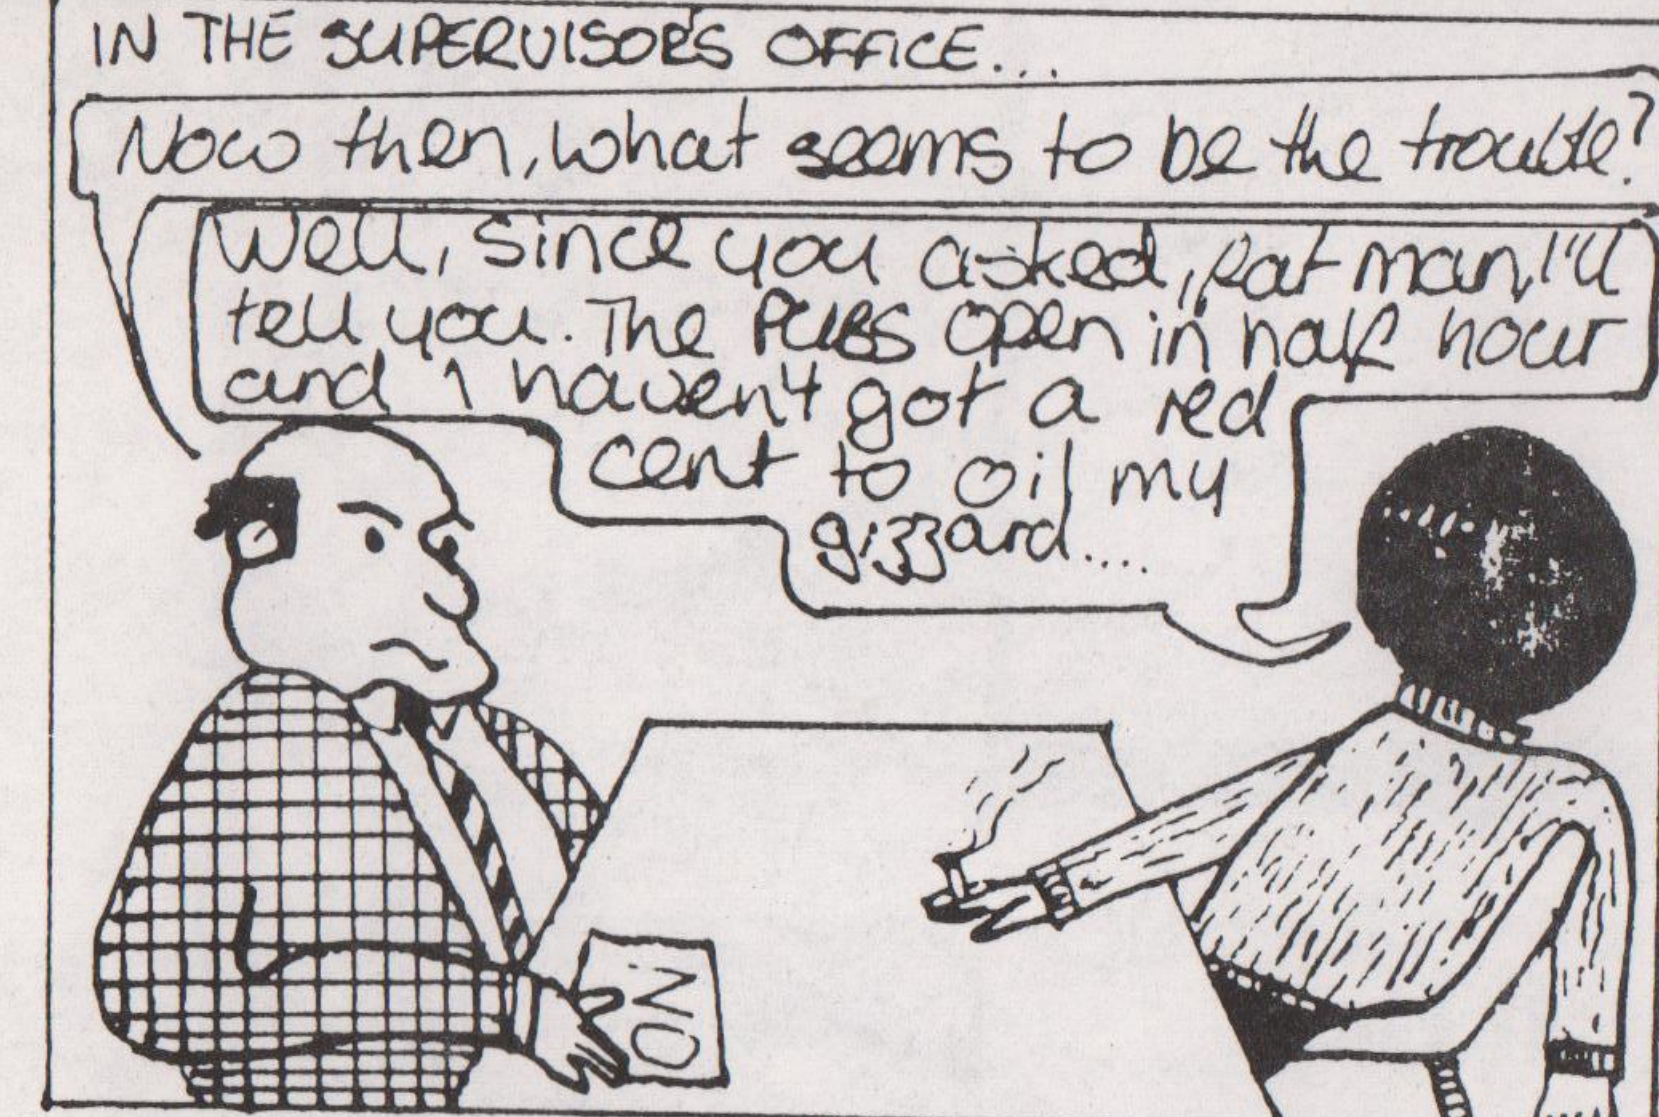 IN THE SUPERVISOR'S OFFICE...
Now then, what seems to be the trouble?
Well, since you asked, fat man, I'll
tell you. The PUBS open in half hour
and I haven't got a red
cent to oil my
gizzard....
NO